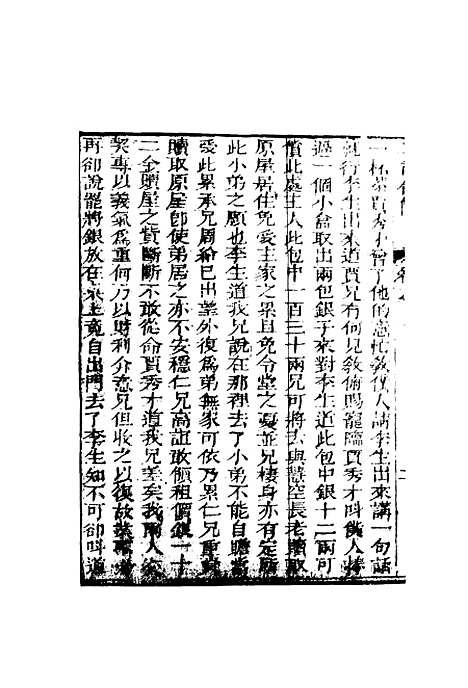 一杯茶賈秀才會了他的意忙教僕人請李生出來講一句話
就行李生出來道賈兄有何見教俯賜寵臨賈秀才叫僕人捧
過一個小盒取出兩包銀子來對李生道此包中銀十二兩可
償此處主人此包中一百三十兩兄可將去與慧空長老贖取
原屋居住免受主家之累且免令堂之憂並兄棲身亦有定所
此小弟之願也李生道我兄說在那裡去了小弟不能自贍
愛此累承兄周給已出望外復為弟無家可依乃累仁兄重
贖取原屋卽使弟居之亦不安穩仁兄高誼敢領租價銀一十
二金贖屋之貲斷斷不敢從命賈秀才道我兄差矣我兩人
契專以義氣為重何乃以財利介意兄但收之以復故業
再卻說罷將銀放在桌上竟自出門去了李生知不可卻叫道